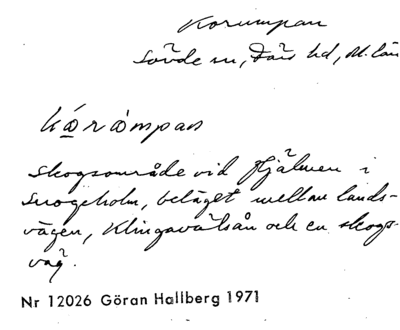 Korumpan
Sövde sn, Färs hd, M. län
skogsområde vid Hjälmen i
Snogeholm, beläget mellan lands-
vägen, Klingavälsån och en skogs-
väg.
Nr 12026 Göran Hallberg 1971